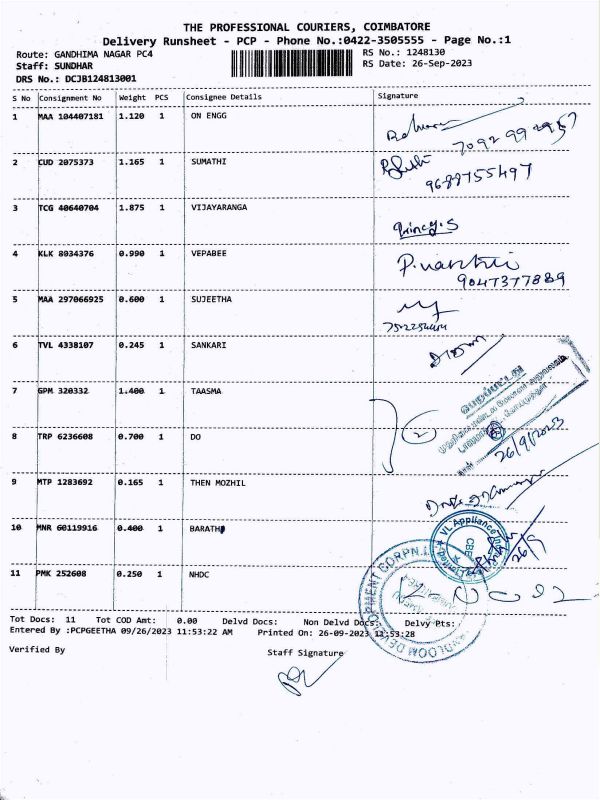 THE PROFESSIONAL COURIERS, COIMBATORE
Delivery Runsheet - PCP - Phone No.:0422-3505555 - Page No.:1
Route: GANDHIMA NAGAR PC4 RS No.: 1248130
Staff: SUNDHAR RS Date: 26-Sep-2023
DRS No.: DCJB124813001
S No Consignment No Weight PCS Consignee Details Signature
1 MAA 104407181 1.120 1 ON ENGG
7092992957
2 CUD 2075373 1.165 1 SUMATHI
9688755497
3 TCG 40640704 1.875 1 VIJAYARANGA
Princy.S
4 KLK 8034376 0.990 1 VEPABEE
9047377889
5 MAA 297066925 0.600 1 SUJEETHA
6 TVL 4338107 0.245 1 SANKARI
7 GPM 320332 1.400 1 TAASMA
பெறப்பட்டது
2
26/9/2023
8 TRP 6236608 0.700 1 DO
9 MTP 1283692 0.165 1 THEN MOZHIL
10 MNR 60119916 0.400 1 BARATH
VL Appliance
CBE
26/9
11 PMK 252608 0.250 1 NHDC
DEVELOPMENT CORPN.
Tot Docs: 11 Tot COD Amt: 0.00 Delvd Docs: Non Delvd Docs: Delvy Pts:
Entered By :PCPGEETHA 09/26/2023 11:53:22 AM Printed On: 26-09-2023 11:53:28
Verified By Staff Signature